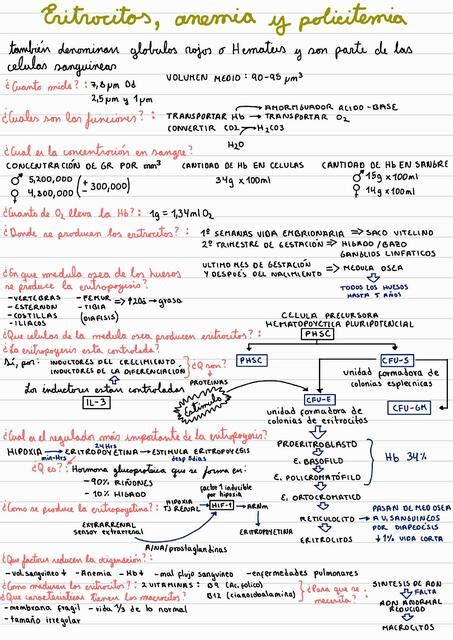 Eritrocitos, anemia y policitemia
también denominan globulos rojos o Hematies y son parte de las
celulas sanguineas
¿Cuanto mide?: 7,8 µm Dd VOLUMEN MEDIO: 90-95 µm³
2,5 µm y 1 µm
¿Cuales son las funciones?: TRANSPORTAR Hb → TRANSPORTAR O2
AMORTIGUADOR ACIDO-BASE
CONVERTIR CO2 → H2CO3
H2O
¿Cual es la concentracion en sangre?
CONCENTRACIÓN DE GR POR mm³ CANTIDAD DE Hb EN CELULAS CANTIDAD DE Hb EN SANGRE
♂ 5,200,000 (± 300,000) 34g x 100ml ♂ 15g x 100ml
♀ 4,800,000 ♀ 14g x 100ml
¿Cuanto de O2 lleva la Hb?: 1g = 1,34ml O2
¿Donde se producen los eritrocitos?: 1º SEMANAS VIDA EMBRIONARIA ⇒ SACO VITELINO
2º TRIMESTRE DE GESTACIÓN ⇒ HIGADO/BAZO
GANGLIOS LINFATICOS
ULTIMO MES DE GESTACIÓN
Y DESPUÉS DEL NACIMIENTO ⇒ MEDULA OSEA
TODOS LOS HUESOS
HASTA 5 AÑOS
¿En que medula osea de los huesos
se produce la eritropoyesis?
- VERTEBRAS - FEMUR ⇒ +20a → grasa
- ESTERNÓN - TIBIA
- COSTILLAS (DIAFISIS)
- ILIACOS
CELULA PRECURSORA
HEMATOPOYETICA PLURIPOTENCIAL
¿Que celulas de la medula osea producen eritrocitos?: PHSC
¿La eritropoyesis esta controlada?
Sí, por: INDUCTORES DEL CRECIMIENTO
INDUCTORES DE LA DIFERENCIACIÓN
¿Q son?
PROTEINAS
PHSC CFU-S
unidad formadora de
colonias esplenicas
Los inductores estan controlados
IL-3
Estimula
CFU-E CFU-GM
unidad formadora de
colonias de eritrocitos
¿Cual es el regulador más importante de la eritropoyesis?
24Hrs
HIPOXIA → ERITROPOYETINA → ESTIMULA ERITROPOYESIS
min-Hrs desp 5 dias
PROERITROBLASTO
E. BASOFILO
E. POLICROMATÓFILO
Hb 34%
E. ORTOCROMATICO
RETICULOCITO → PASAN DE MED OSEA
A V. SANGUINEOS
POR DIAPEDESIS
ERITROCITOS ↓ 1% VIDA CORTA
¿Q es?: Hormona glucoproteica que se forma en:
- 90% RIÑONES
- 10% HIGADO
factor 1 inducible
por hipoxia
¿Como se produce la eritropoyetina?: HIPOXIA
TJ RENAL → HIF-1 → ARNm
EXTRARRENAL
sensor extrarrenal
ERITROPOYETINA
A/NA/prostaglandinas
¿Que factores reducen la oxigenación?:
- vol. sanguineo ↓ - Anemia - Hb↓ - mal flujo sanguineo - enfermedades pulmonares
¿Como maduran los eritrocitos?: 2 VITAMINAS: B9 (Ac. folico)
B12 (cianocobalamina)
¿Para que se
necesita?
SINTESIS DE ADN
FALTA
ADN ANORMAL
REDUCIDO
MACROCITOS
¿Que caracteristicas tienen los macrocitos?
- membrana fragil - vida 1/3 de lo normal
- tamaño irregular